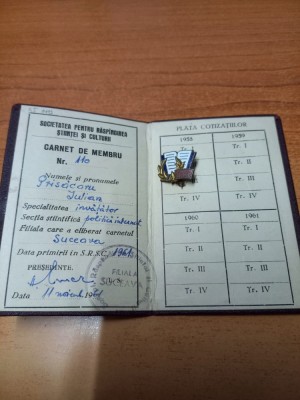 SOCIETATEA PENTRU RĂSPÎNDIREA
ȘTIINȚEI ȘI CULTURII
CARNET DE MEMBRU
Nr. 110
Numele și pronumele
Iulian
Specialitatea învățător
Secția științifică
Filiala care a eliberat carnetul
Suceava
Data primirii în S.R.S.C. 1961
PREȘEDINTE,
Data 11
FILIALA
SUCEAVA
PLATA COTIZAȚIILOR
1958 1959
Tr. I
Tr. II
Tr. III
Tr. IV Tr. IV
1960 1961
Tr. I Tr. I
Tr. II Tr. II
Tr. III Tr. III
Tr. IV Tr. IV